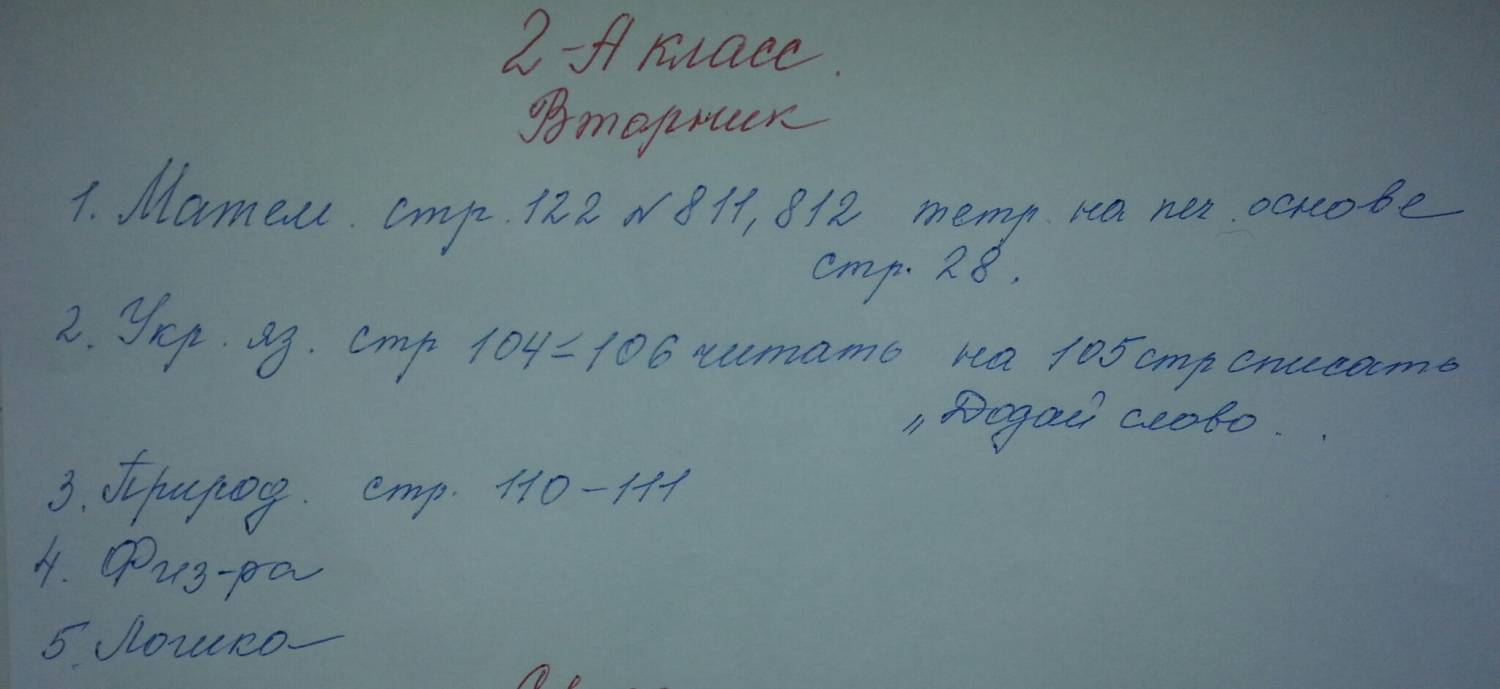 2-А класс.
Вторник
1. Матем. стр. 122 № 811, 812 тетр. на печ. основе
стр. 28.
2. Укр. яз. стр 104-106 читать на 105 стр списать
„Додай слово...
3. Природ. стр. 110-111
4. Физ-ра
5. Логика